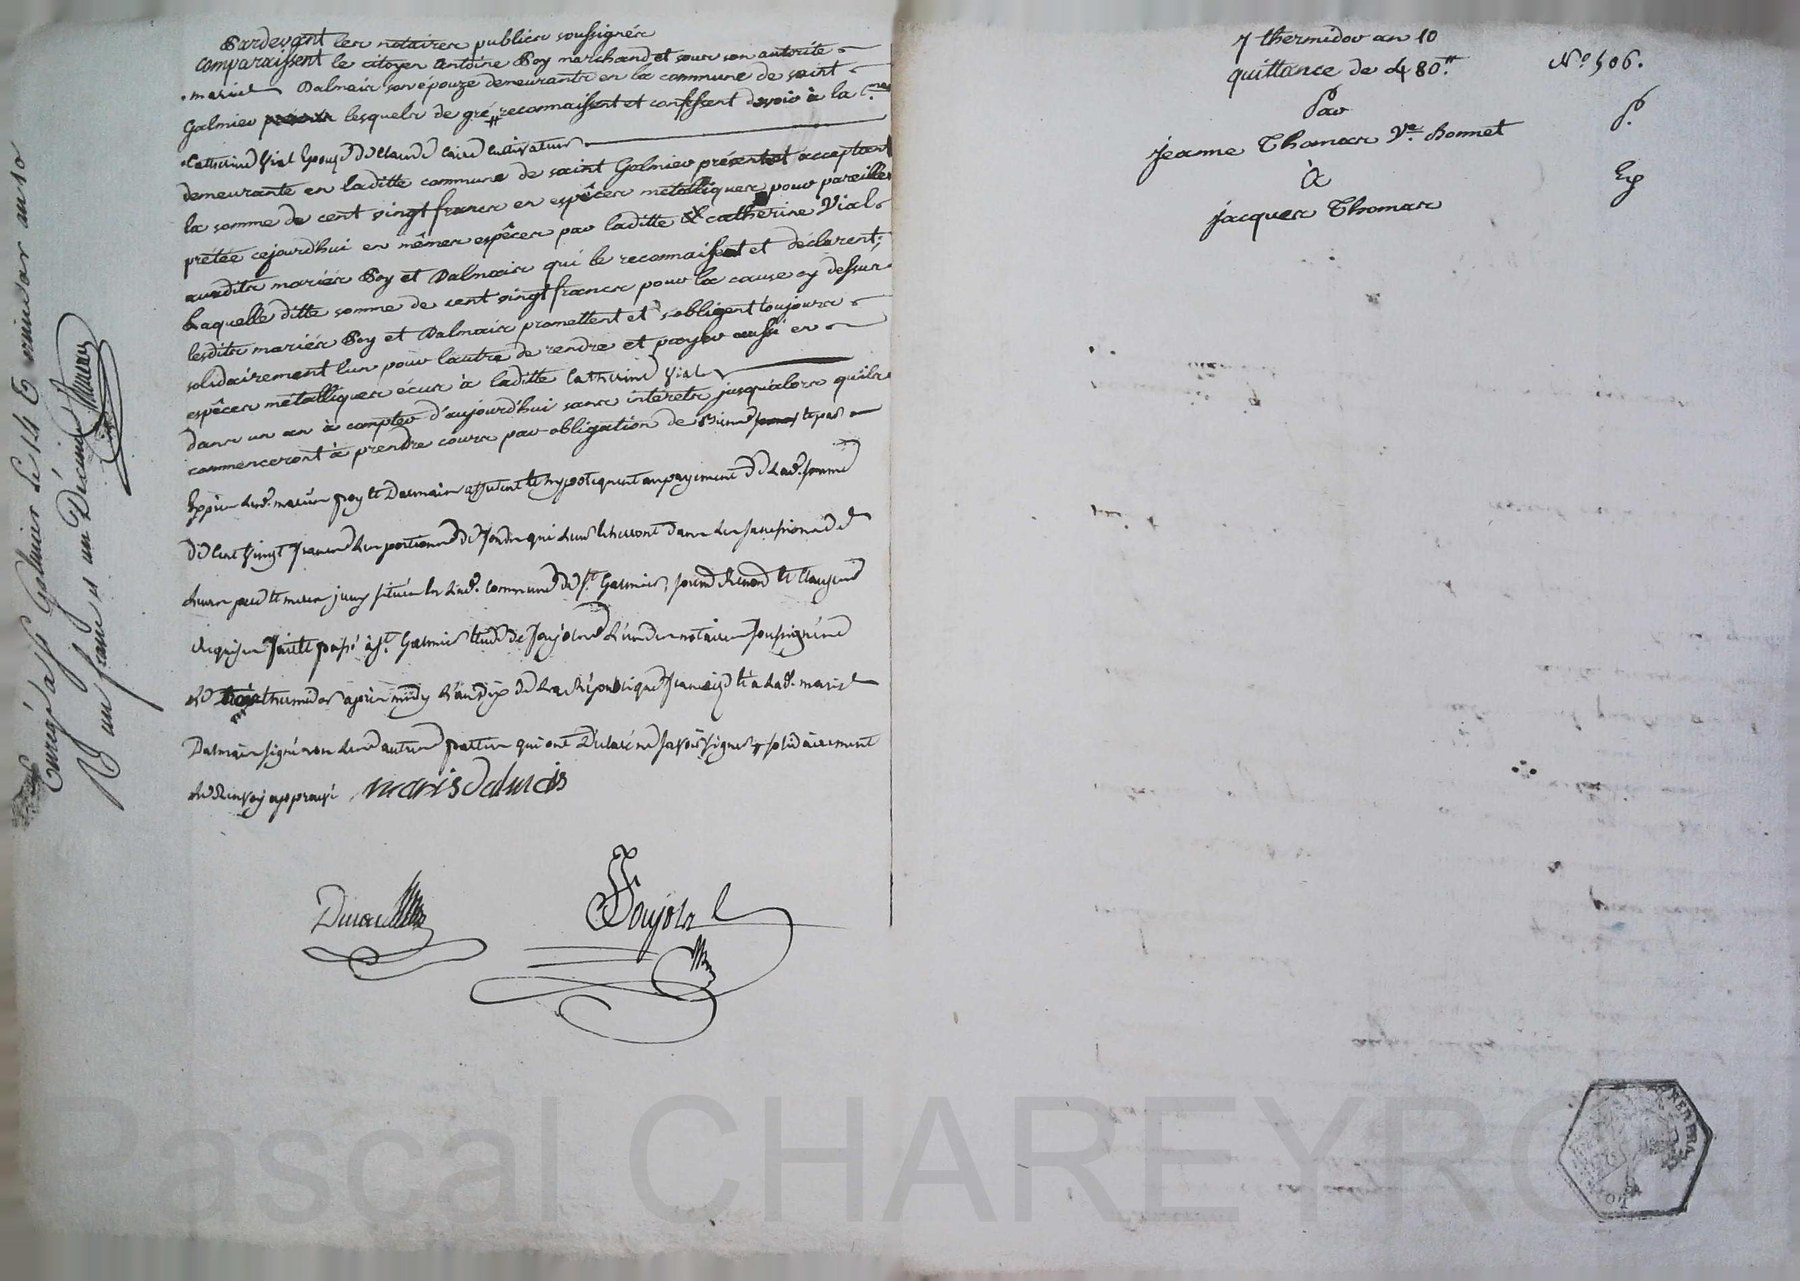 Pardevant les notaires publics soussignés
comparaissent le citoyen antoine Poy marchand et sous son autorité
marie Dalmais son épouze demeurants en la commune de saint
Galmier lesquels de gré reconnaissent et confessent devoir à la C.ne
Catherine Vial Epouse de Claude Caire Cultivateur
demeurante en laditte commune de saint Galmier présente acceptant
la somme de cent vingt francs en espêces métalliques pour pareille
prétée cejourd'hui en mêmes espêces par laditte catherine Vial
auxdits mariés Poy et Dalmais qui le reconnaissent et déclarent;
Laquelle ditte somme de cent vingt francs pour la cause cy dessus
lesdits mariés Poy et Dalmais promettent et s'obligent toujours
solidairement l'un pour l'autre de rendre et payer aussi en
espêces métalliques écus à laditte Catherine Vial
dans un an à compter d'aujourd'hui sans intérets jusqualors qu'ils
commenceront à prendre cours par obligation de
Exprès lesd. mariés poy et Dalmais affectent et hypotequent au payement de lad. somme
de Cent vingt francs les portions de fonds qui leur écherront dans les successions de
leurs pere et mere situés en lad. Commune de S.t Galmier,
requises faitte passé à S.t Galmier étude de Foujols l'un des notaires soussignés
le thermidor après midy l'an dix de la République française et a lad. marie
Dalmais signé non les autres parties qui ont déclaré ne savoir signer solidairement
de Renvoy approuvé marie Dalmais
Foujols
Enreg.é à S.t Galmier le 14
R un franc et un Décime
7 thermidor an 10
quittance de 480.tt
Par
Jeanne Thomas V.e Bonnet
à
jacques Thomas
N.o 506.
P.
Exp
Pascal CHAREYRON